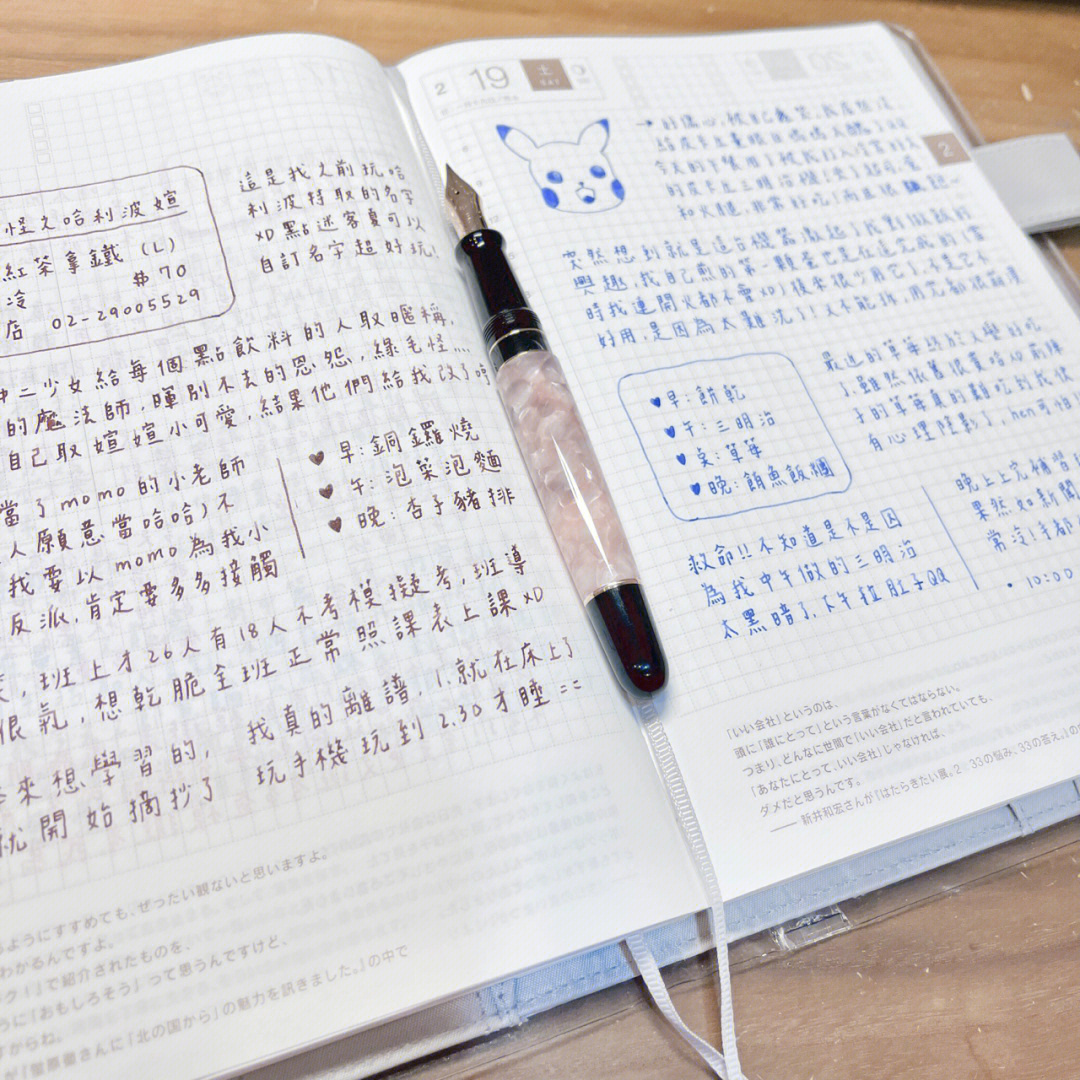 怪之哈利波媗
紅茶拿鐵 (L)
冷 $70
店 02-29005529
這是我之前玩哈
利波特取的名字
XD 點迷客夏可以
自訂名字超好玩!
中二少女給每個點飲料的人取暱稱,
的魔法師,暉別不去的恩怨,綠毛怪...
自己取媗媗小可愛,結果他們給我改了哼
當了momo的小老師
人願意當哈哈)不
我要以momo為我小
反派,肯定要多多接觸
♥早:銅鑼燒
♥午:泡菜泡麵
♥晚:杏子豬排
,班上才26人有18人不考模擬考,班導
很氣,想乾脆全班正常照課表上課XD
來想學習的, 我真的離譜,1.就在床上了
就開始摘抄了 玩手機玩到2.30才睡==
るようにすすめても、ぜったい観ないと思いますよ。
わかるんですよ。
ク!』で紹介されたものを、
うに「おもしろそう」って思うんですけど、
すからね。
さんに「北の国から」の魅力を訊きました。』の中で
2 19 土
SAT
2
→的傷心,被自己蠢哭,我居然沒
今天的午餐用了被我打入冷宮的
的皮卡丘三明治機(夾)超可愛
和火腿,非常好吃!而且很
突然想到就是這台機器激起了我對做飯的
興趣,我自己煎的第一顆蛋也是在這完成的(當
時我連開火都不會XD)後來很少用它了,不是它不
好用,是因為太難洗了!又不能拆,用完都很崩潰
♥早:餅乾
♥午:三明治
♥桌:草莓
♥晚:鮪魚飯糰
最近的草莓終於人變好吃
了雖然依舊很貴哈XD前陣
子的草莓真的難吃到我快
有心理陰影了,hen可怕!
救命!!不知道是不是因
為我中午做的三明治
太黑暗了,下午拉肚子QQ
晚上上完補習
果然如新聞
常冷!手都
• 10:00
「いい会社」というのは、
頭に「誰にとって」という言葉がなくてはならない。
つまり、どんなに世間で「いい会社」だと言われていても、
「あなたにとって、いい会社」じゃなければ、
ダメだと思うんです。
── 新井和宏さんが『はたらきたい展。2 33の悩み、33の答え。』の